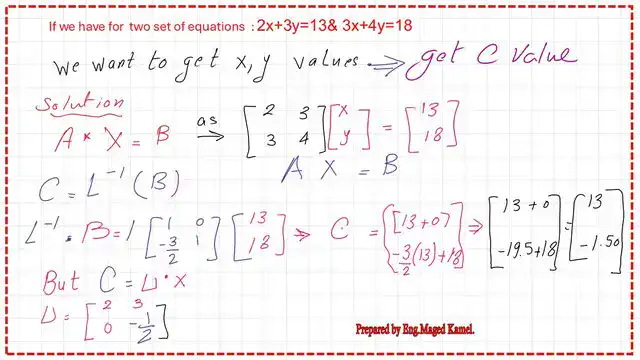 If we have for two set of equations : 2x+3y=13& 3x+4y=18
we want to get x, y values ⇒ get C value
Solution
A * X = B as → [2 3; 3 4] [x; y] = [13; 18]
A X = B
C = L⁻¹ (B)
L⁻¹ * B = 1 [1 0; -3/2 1] [13; 18] ⇒ C = [13+0; -3/2(13)+18] ⇒ [13+0; -19.5+18] = [13; -1.50]
But C = U * X
U = [2 3; 0 -1/2]
Prepared by Eng.Maged Kamel.